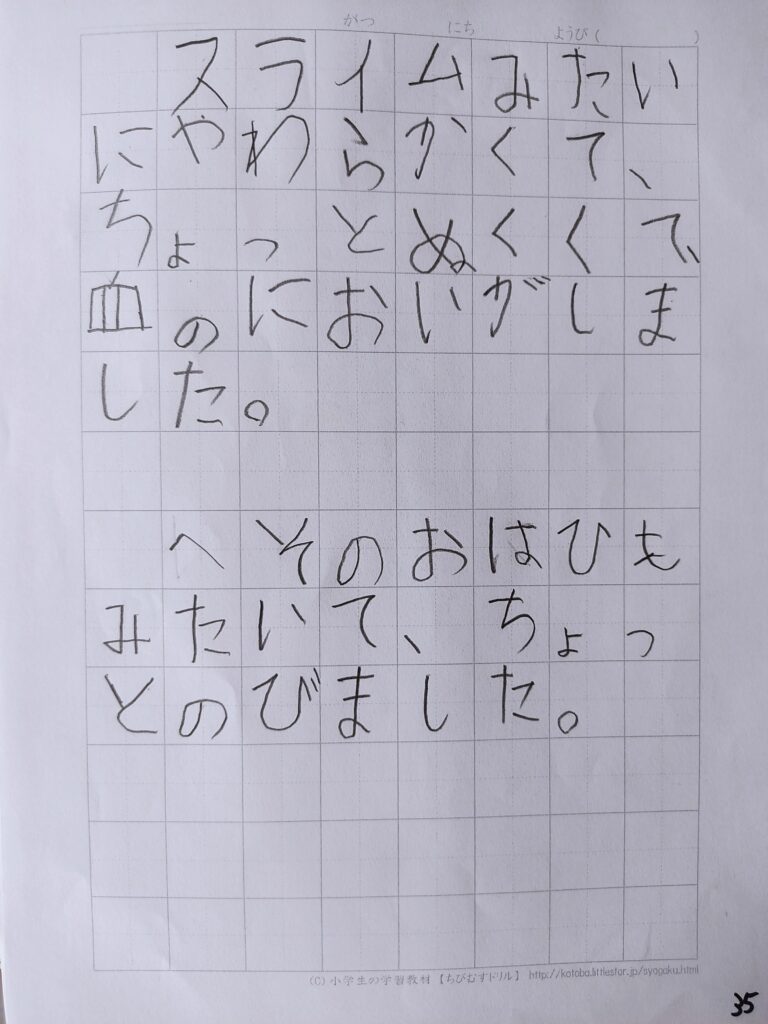 がつ にち ようび ( )
スライムみたい
にやわらかくて、
ちょっとぬくくて、
血のにおいがしま
した。
へそのおはひも
みたいて、ちょっ
とのびました。
(C) 小学生の学習教材【ちびむすドリル】 http://kotoba.littlestar.jp/syogaku.html
35